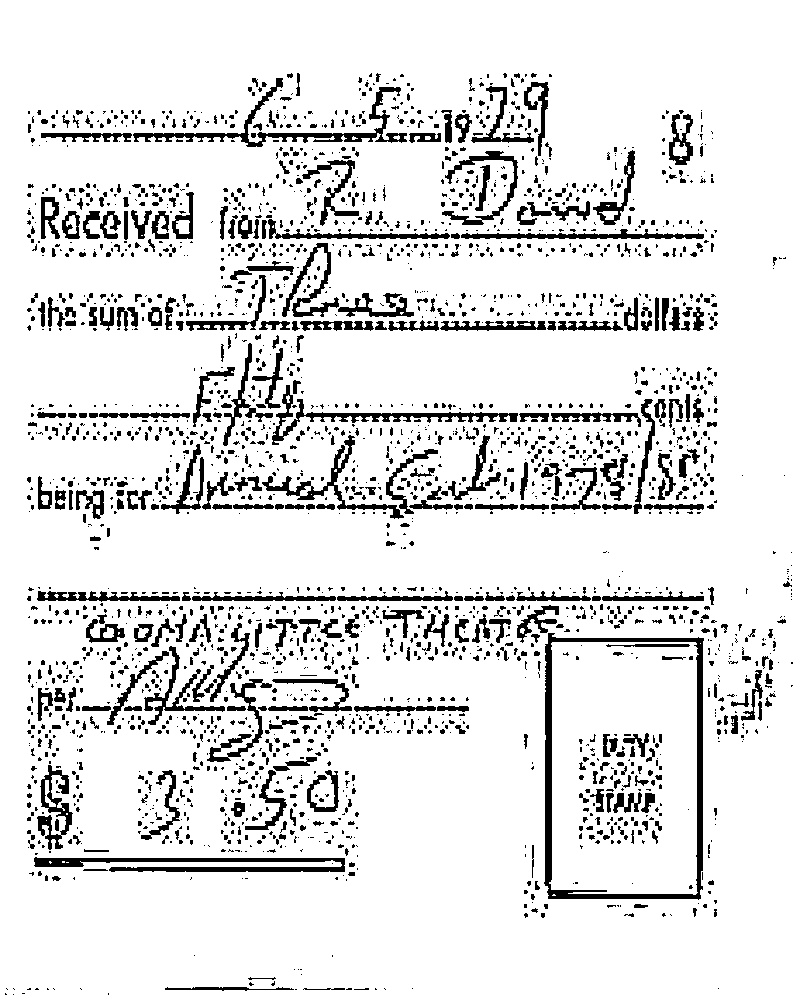 6 5 1979 8
Received from R David
the sum of Three dollars
Fifty cents
being for Annual Sub 1979/80
COOMA LITTLE THEATRE
per
$ 3.50
DUTY
STAMP